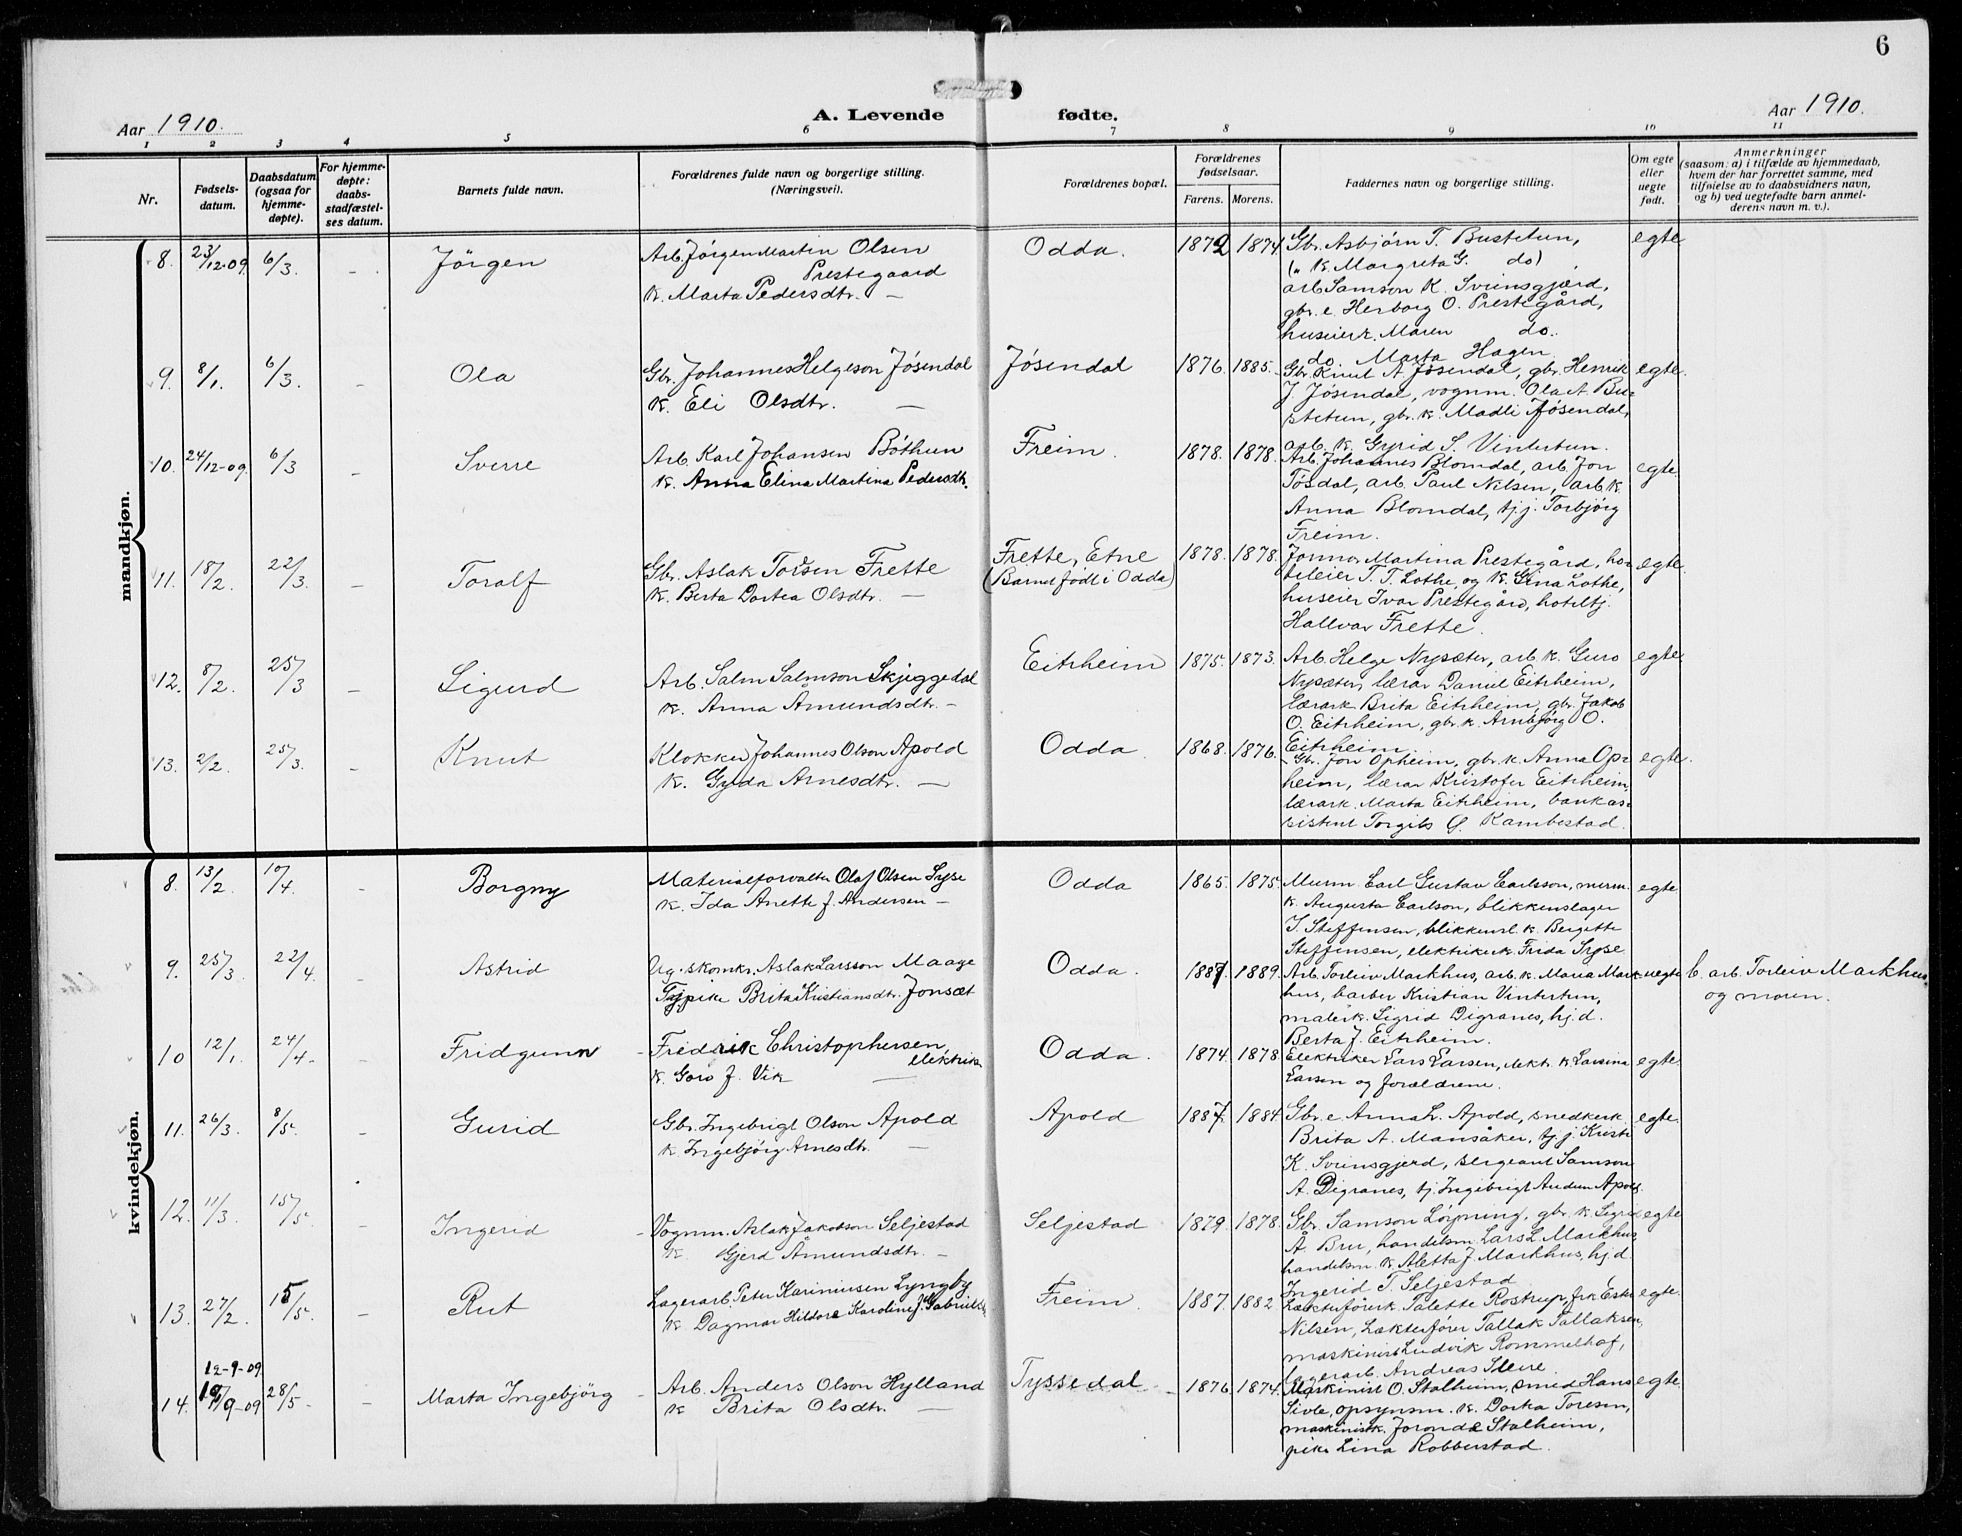 6
Aar 1910.
A. Levende fødte.
Aar 1910.
1 2 3 4 5 6 7 8 9 10 11
Nr.
Fødsels-
datum.
Daabsdatum
(ogsaa for
hjemme-
døpte).
For hjemme-
døpte:
daabs-
stadfæstel-
ses datum.
Barnets fulde navn.
Forældrenes fulde navn og borgerlige stilling.
(Næringsvei).
Forældrenes bopæl.
Forældrenes
fødselsaar.
Farens. Morens.
Faddernes navn og borgerlige stilling.
Om egte
eller
uegte
født.
Anmerkninger
(saasom: a) i tilfælde av hjemmedaab,
hvem der har forrettet samme, med
tilføielse av to daabsvidners navn,
og b) ved uegtefødte barn anmel-
derens navn m. v.).
mandkjøn.
8. 23/12-09 6/3 - Jörgen
Arb. Jörgen Martin Olsen
Prestegaard
k. Marta Pedersdtr. —
Odda. 1872 1874.
Gbr. Asbjørn T. Bustetun,
(" k. Margreta G. do)
arb. Samson K. Svinsgjærd,
gbr. e. Herborg O. Prestegård,
huseierk. Maren do.
do. Marta Hagen
egte
9. 8/1. 6/3. - Ola
Gbr. Johannes Helgeson Jösendal
k. Eli Olsdtr. —
Jösendal 1876. 1885.
Gbr. Knut A. Jøsendal, gbr. Henrik
J. Jösendal, vognm. Ola A. Bu-
stetun, gbr. k. Madli Jøsendal,
arb. k. Gyrid S. Vintertun.
egte.
10. 24/12-09. 6/3 - Sverre
Arb. Karl Johansen Böthun
k. Anna Elina Martina Pedersdtr.
Freim. 1878. 1878.
Arb. Johannes Blomdal, arb. Jon
Tösdal, arb. Paul Nilsen, arb. k.
Anna Blomdal, tj. j. Torbjörg
Freim.
egte.
11. 18/2. 22/3. - Toralf
Gbr. Aslak Torsen Frette
k. Berta Dortea Olsdtr. —
Frette, Etne
(Barnet født i Odda)
1878. 1878
Jomfru Martina Prestegård, ho-
teleier T. T. Lothe, og k. Gina Lothe,
huseier Ivar Prestegård, hoteltj.
Hallvar Frette.
egte.
12. 8/2. 25/3 - Sigurd
Arb. Salm Salmson Skjeggedal
k. Anna Åmundsdtr. -
Eitrheim 1875. 1873.
Arb. Helge Nysæter, arb. k. Guro
Nysæter, lærar Daniel Eitrheim,
lærark. Brita Eitrheim, gbr. Jakob
O. Eitrheim, gbr. k. Arnbjörg O.
Eitrheim.
egte.
13. 2/2. 25/3. - Knut
Klokker Johannes Olson Apold
k. Gyda Arnesdtr. —
Odda. 1868. 1876.
Gbr. Jon Opheim, gbr. k. Anna Op-
heim, lærar Kristofer Eitrheim,
lærark. Marta Eitrheim, bankas-
sistent Torgils G. Kambestad.
egte.
kvindekjøn.
8. 13/2. 10/4. - Borgny
Materialforvalter Olaf Olsen Syse
k. Ida Anette f. Andersen —
Odda 1865. 1875.
Murm. Carl Gustav Carlsson, murm.
k. Augusta Carlson, blikkenslager
I. Steffensen, blikkensl. k. Bergitte
Steffensen, elektrikerk. Frida Syse
egte.
9. 25/3. 22/4. - Astrid
Ug. skomkr. Aslak Larsson Maage
Tj. pike Brita Kristiansdtr. Jonsæt
Odda. 1887. 1889.
Arb. Torleiv Markhus, arb. k. Maria Mark-
hus, barber Kristian Vintertun,
malerk. Sigrid Digranes, hj. d.
Berta J. Eitrheim.
uegte
b. arb. Torleiv Markhus
og moren.
10 12/1. 24/4. - Fridgunn
Fredrik Christophersen,
elektriker
k. Goro f. Vik —
Odda. 1874. 1878
Elektriker Lars Larsen, elekt. k. Larsina
Larsen og forældrene.
egte.
11. 26/3. 8/5. - Gurid
Gbr. Ingebrigt Olson Apold
k. Ingebjörg Arnesdtr. —
Apold 1887. 1884.
Gbr. e. Anna L. Apold, snedkerk.
Brita A. Mansåker, tj. j. Kristi
K. Svinsgjerd, sergeant Samson
A. Digranes, tj. Ingebrigt Andun Apold.
egte.
12. 11/3. 15/5. - Ingerid
Vognm. Aslak Jakobson Seljestad
k. Gjerd Åmundsdtr. -
Seljestad 1879. 1878.
Gbr. Samson Löyning, gbr. k. Sigrid
Å. Bru, handelsm. Lars L. Markhus,
handelsm. k. Aletta J. Markhus, hj. d.
Ingerid T. Seljestad
egte
13. 27/2. 15/5. - Rut
Lagerarb. Peter Kariniusen Lyngby
k. Dagmar Hildora Karoline f. Gabrielsen
Freim. 1887. 1882
Lækterførerk. Talette Rostrup, frk. Ester
Nilsen, Lækterfører Tallak Tallaksen,
maskinist Ludvik Rommelhof,
lagerarb. Andreas Steire.
egte.
14. 12-9-09 /9-09 28/5- - Marta Ingebjörg
Arb. Anders Olson Hylland
k Brita Olsdtr. —
Tyssedal. 1876 1874.
Maskinist O. Stalheim, smed Hans
Sivle, opsynsm. k. Dorka Toresen,
maskinistk. Joronde Stalheim,
pike Lina Robberstad.
egte.